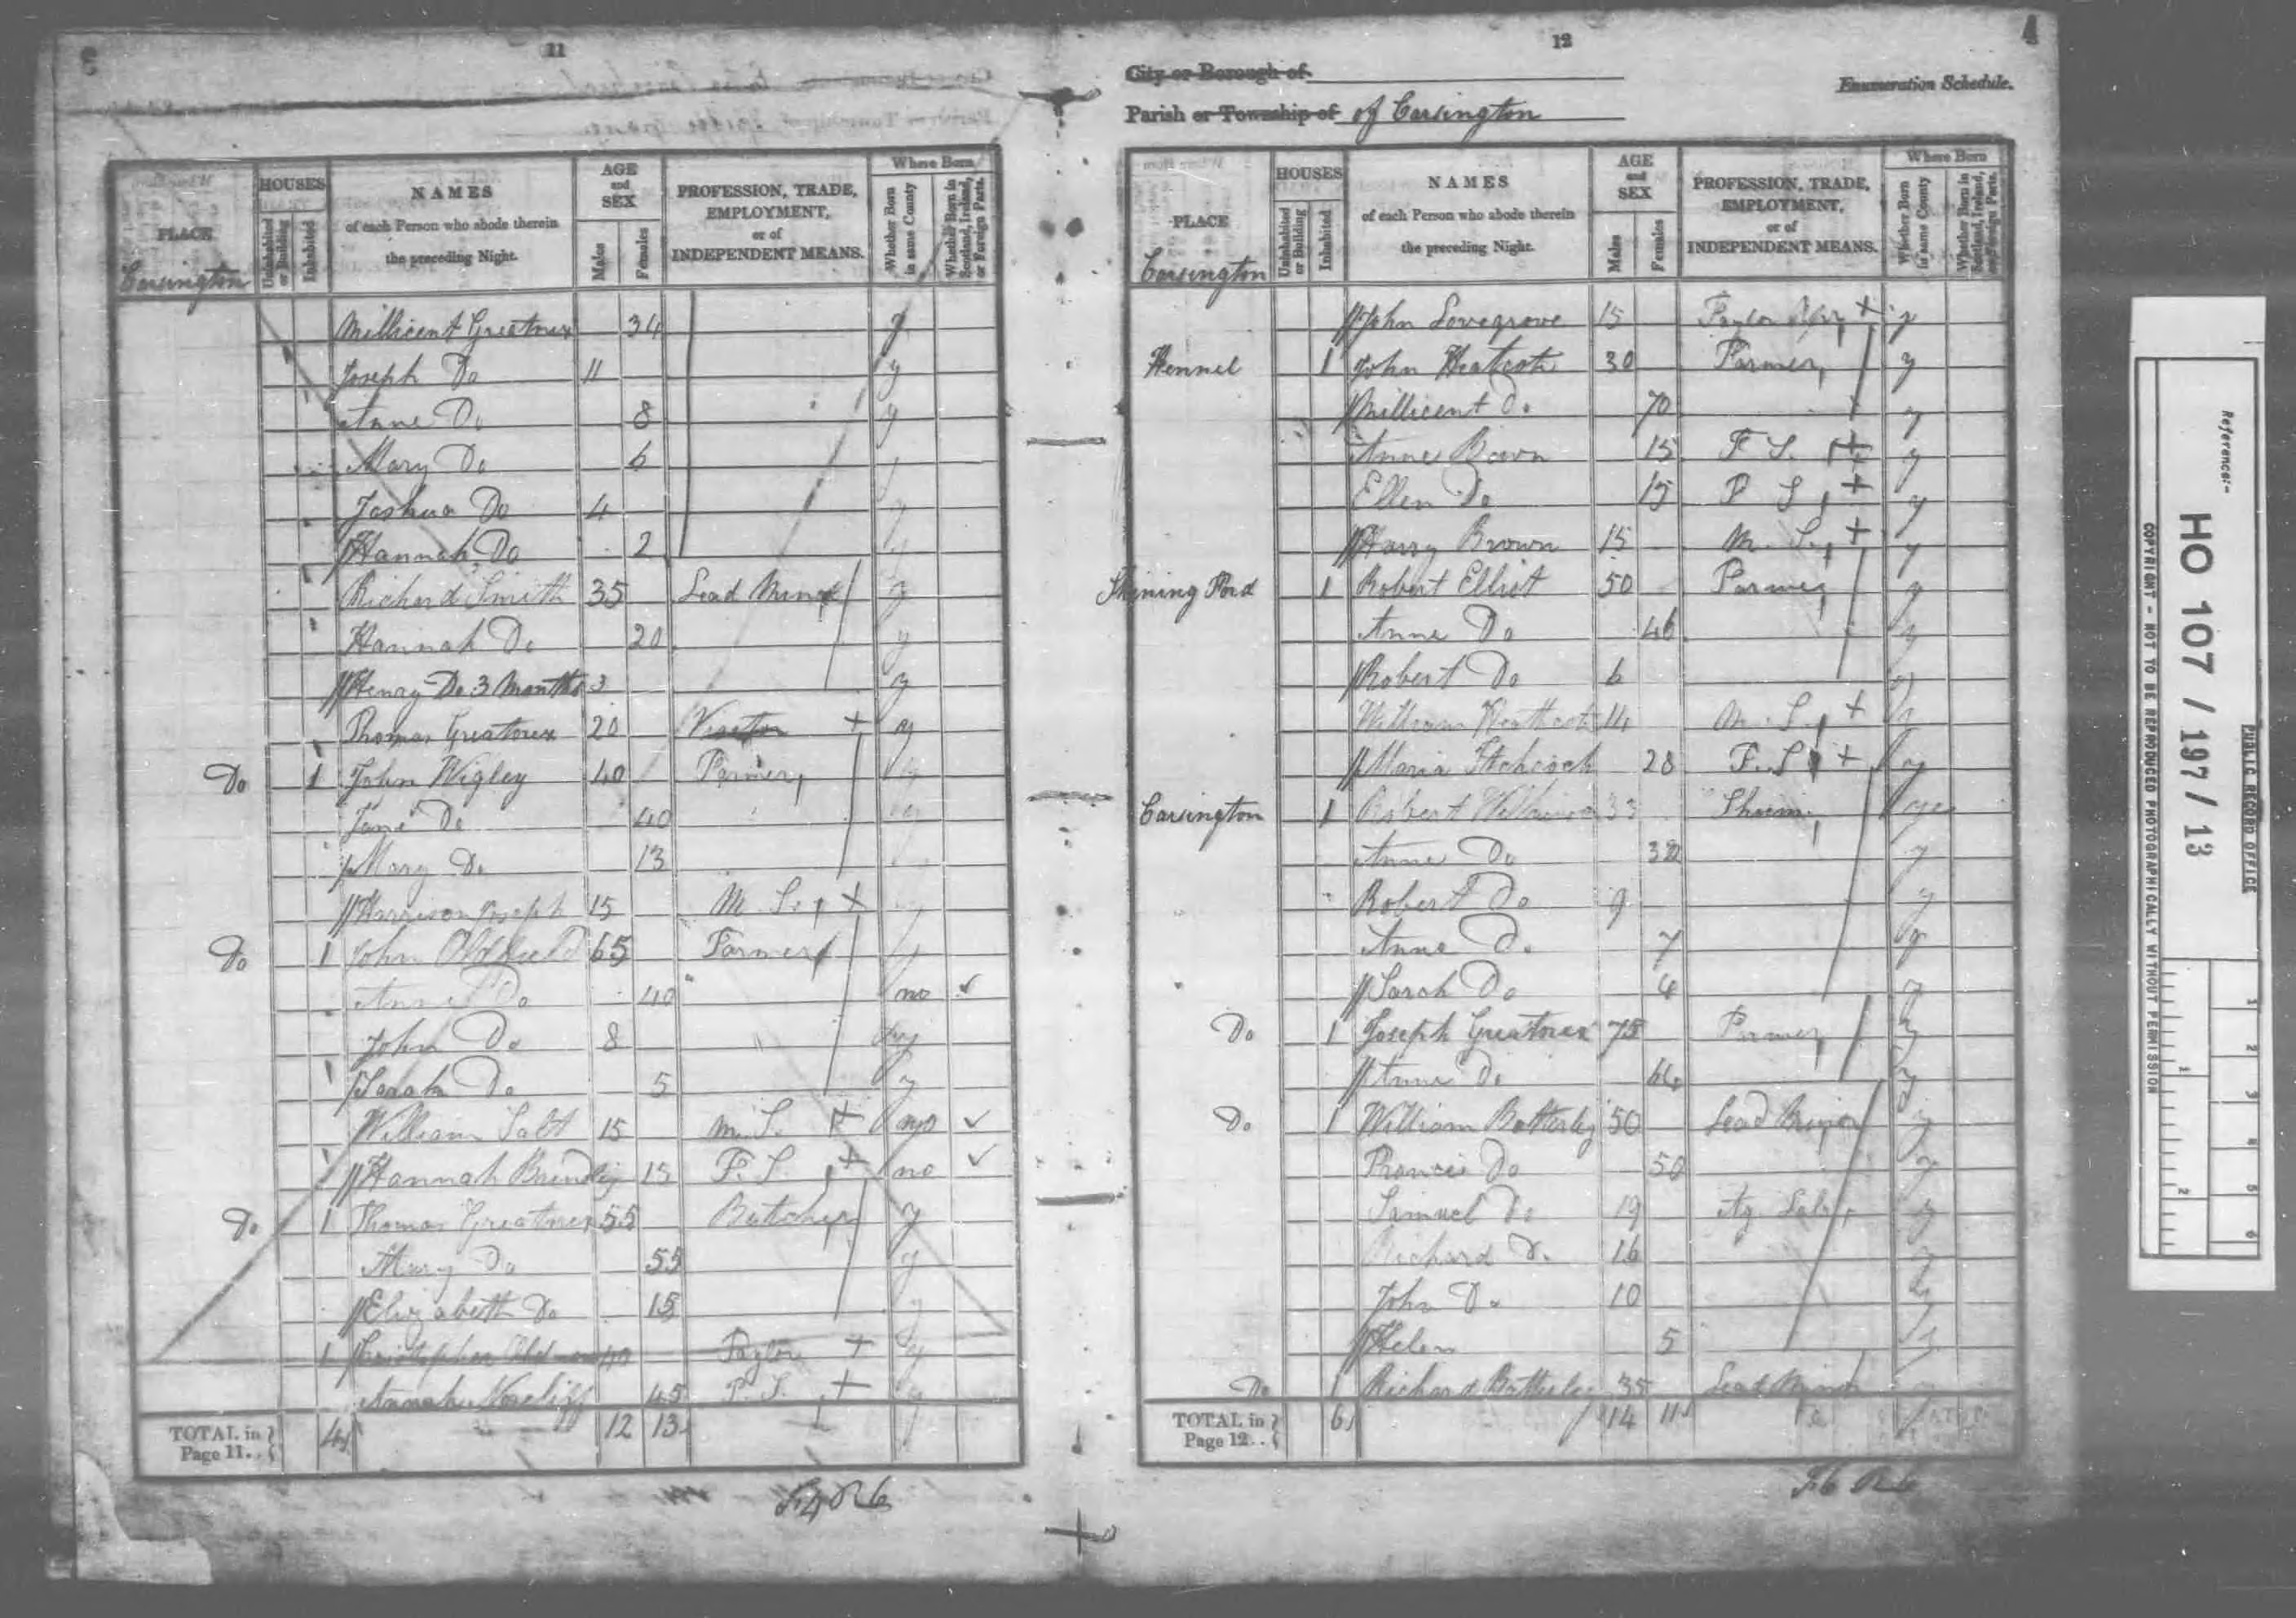 11
PLACE
HOUSES
Uninhabited or Building
Inhabited
NAMES
of each Person who abode therein
the preceding Night.
AGE and SEX
Males
Females
PROFESSION, TRADE, EMPLOYMENT, or of INDEPENDENT MEANS.
Where Born
Whether Born in same County
Whether Born in Scotland, Ireland, or Foreign Parts.
Carsington
Millicent Greatorex 34 y
Joseph Do 11 y
Anne Do 8 y
Mary Do 6 y
Joshua Do 4 y
Hannah Do 2 y
Richard Smith 35 Lead Miner y
Hannah Do 20 y
Henry Do 3 Months 3 y
Thomas Greatorex 20 + y
Do 1 John Wigley 40 Farmer y
Jane Do 40 y
Mary Do 13 y
Harrison Joseph 15 M. S. + y
Do 1 John Oldfield 65 Farmer y
Anne Do 40 no ✓
John Do 8 y
Sarah Do 5 y
William Salt 15 M. S. + no ✓
Hannah Brindley 15 F. S. + no ✓
Do 1 Thomas Greatorex 55 Butcher y
Mary Do 55 y
Elizabeth Do 15 y
1 Taylor + y
Annah 45 F. S. + y
TOTAL in Page 11.. 4 12 13
12
4
City or Borough of
Enumeration Schedule.
Parish or Township of of Carsington
PLACE
HOUSES
Uninhabited or Building
Inhabited
NAMES
of each Person who abode therein
the preceding Night.
AGE and SEX
Males
Females
PROFESSION, TRADE, EMPLOYMENT, or of INDEPENDENT MEANS.
Where Born
Whether Born in same County
Whether Born in Scotland, Ireland, or Foreign Parts.
Carsington
John Lovegrove 15 Taylor Apr + y
Hennel 1 John Heatcote 30 Farmer y
Millicent Do 70 y
Anne Bown 15 F S. + y
Ellen Do 15 F S. + y
Harry Brown 15 M. S. + y
Shining Ford 1 Robert Elliot 50 Farmer y
Anne Do 46 y
Robert Do 6 y
William Heathcote 14 M. S. + y
Maria Hichcock 28 F. S + y
Carsington 1 Robert 33 Shoem. yes
Anne Do 32 y
Robert Do 9 y
Anne Do 7 y
Sarah Do 4 y
Do 1 Joseph Greatorex 75 Farmer y
Anne Do 64 y
Do 1 William Botterley 50 Lead Minor y
Francis Do 50 y
Samuel Do 19 Ag Lab y
Richard Do 16 y
John Do 10 y
Helen 5 y
Do 1 Richard 35 Lead Minor
TOTAL in Page 12.. 6 14 11
Reference:-
HO 107 / 197 / 13
PUBLIC RECORD OFFICE
COPYRIGHT - NOT TO BE REPRODUCED PHOTOGRAPHICALLY WITHOUT PERMISSION
1
2
1
2
3
4
5
6